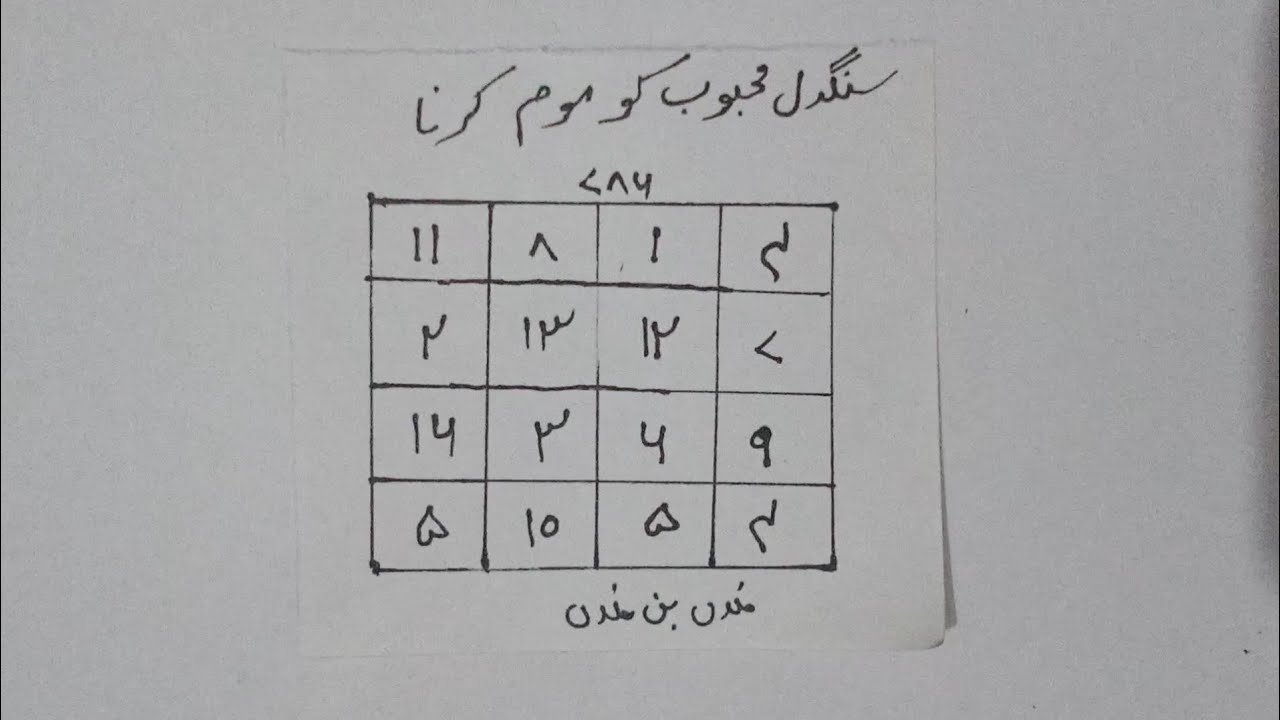 سنگدل محبوب کو موم کرنا
۷۸۶
۱۱ ۸ ۱ ۴
۲ ۱۳ ۱۲ ۷
۱۶ ۳ ۶ ۹
۵ ۱۰ ۵ ۴
فلاں بن فلاں